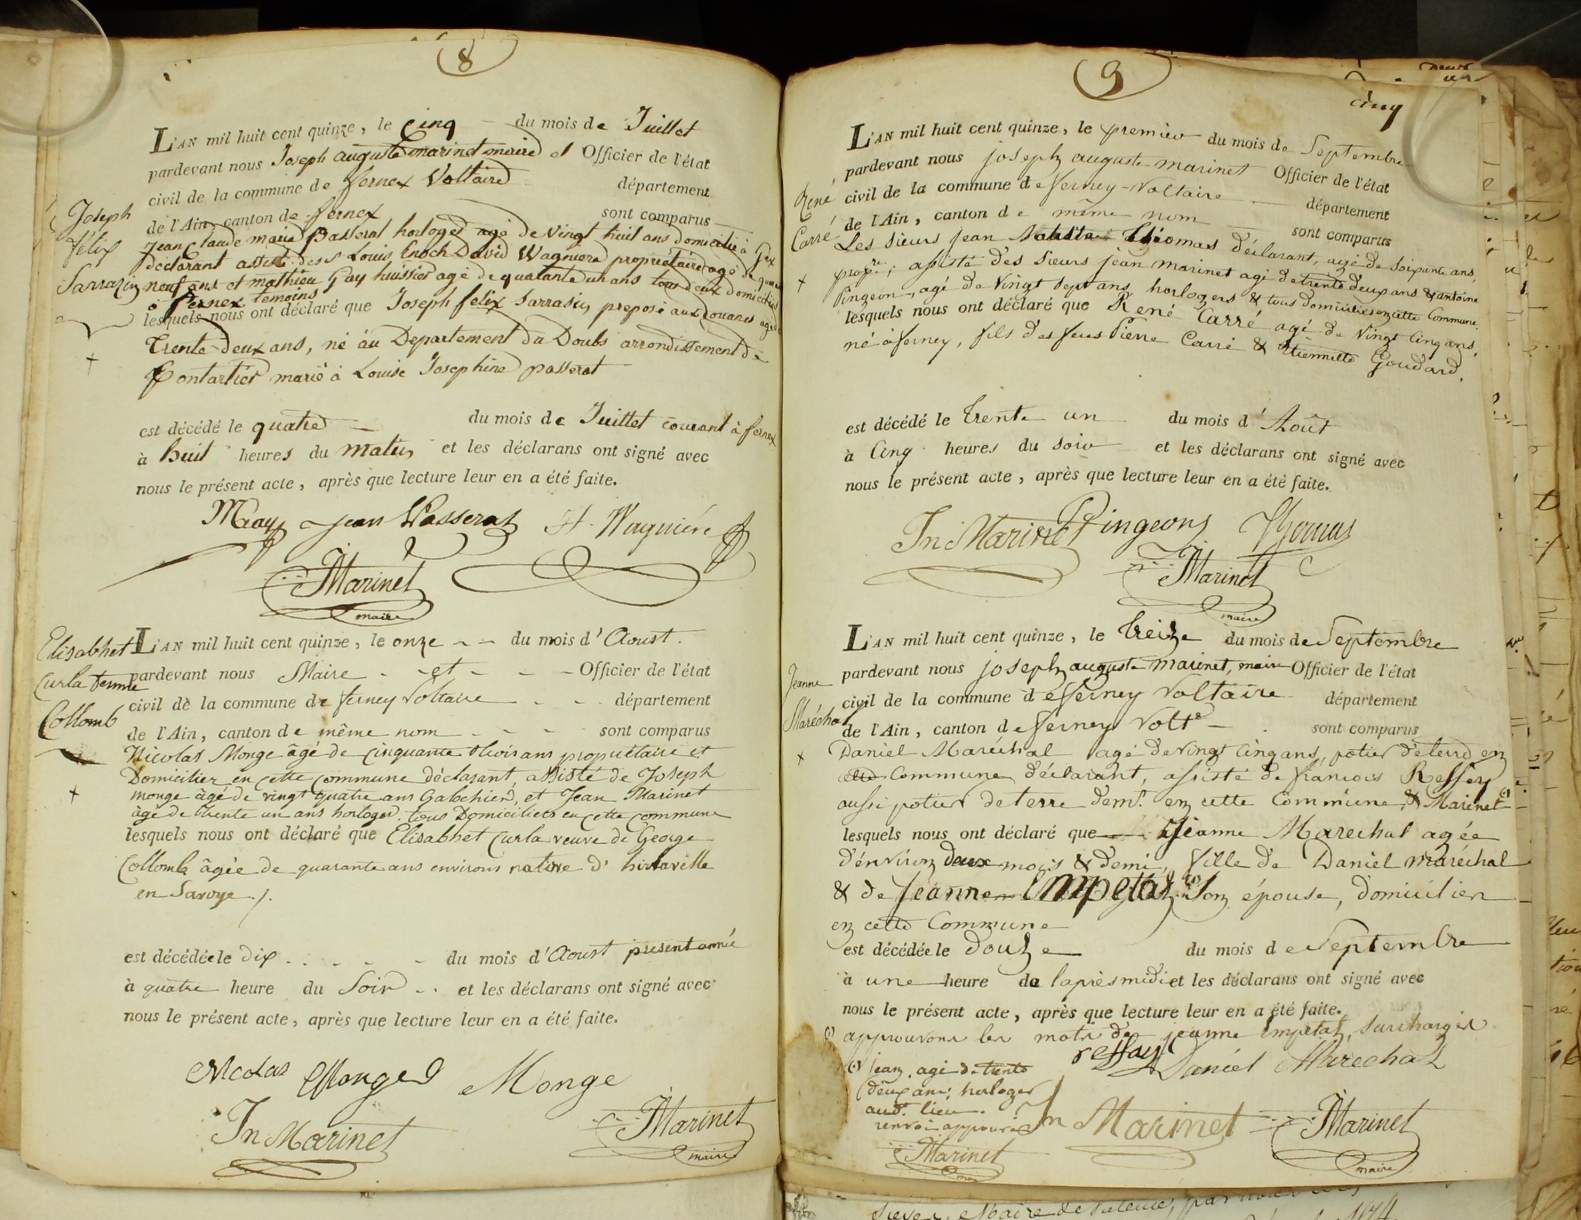 8
L'AN mil huit cent quinze, le cinq du mois de Juillet
pardevant nous Joseph auguste marinet maire et Officier de l'état
civil de la commune de fernex Voltaire département
de l'Ain, canton de fernex sont comparus
Joseph
félix
Sarrazin
Jean Claude marie Passerat horloger agé de vingt huit ans domicilié à Gex
déclarant assisté des Louis Enoch David Wagnière propriétaire agé de
neuf ans et mathieu Gay huissier agé de quarante un ans tous deux domiciliés
à Fernex temoins
lesquels nous ont déclaré que Joseph félix Sarrasin preposé aux douanes agé de
Trente deux ans, né au Departement du Doubs arrondissement de
Pontarlier marié à Louise Josephine passerat
est décédé le quatre du mois de Juillet courant à fernex
à huit heures du matin et les déclarans ont signé avec
nous le présent acte, après que lecture leur en a été faite.
MGay Jean Passerat H. Wagnière
Marinet
maire
Elisabhet
Curla femme
Collomb
L'AN mil huit cent quinze, le onze du mois d'Aoust.
pardevant nous Maire et Officier de l'état
civil de la commune de ferney Voltaire département
de l'Ain, canton de même nom sont comparus
Nicolas Monge âgé de cinquante trois ans propriétaire et
Domicilier en cette commune déclarant, assisté de Joseph
monge âgé de vingt quatre ans Galochier, et Jean Marinet
agé de trente un ans horloger. tous Domiciliers en cette commune
lesquels nous ont déclaré que Elisabhet Curla veuve de George
Collomb âgée de quarante ans environs native d'
en Savoye ./.
est décédée le dix du mois d'Aoust present année
à quatre heure du Soir et les déclarans ont signé avec
nous le présent acte, après que lecture leur en a été faite.
Nicolas Monge Monge
Jn Marinet Marinet
maire
9
cinq
L'AN mil huit cent quinze, le premier du mois de Septembre
pardevant nous joseph auguste marinet Officier de l'état
civil de la commune de ferney-Voltaire département
de l'Ain, canton de même nom sont comparus
René
Carré
Les sieurs jean Thomas déclarant, agé de soixante ans
propre; assisté des sieurs jean marinet agé de trente deux ans & antoine
Pingeon, agé de vingt sept ans, horlogers & tous domiciliers en cette Commune.
lesquels nous ont déclaré que René Carré agé de vingt cinq ans,
né à ferney, fils des feus Pierre Carré & Etiennette Goudard,
est décédé le trente un du mois d'Août
à cinq heures du soir et les déclarans ont signé avec
nous le présent acte, après que lecture leur en a été faite.
Jn Marinet Pingeons Thomas
Marinet
maire
Jeanne
Maréchal
L'AN mil huit cent quinze, le treize du mois de Septembre
pardevant nous joseph auguste marinet, maire Officier de l'état
civil de la commune de ferney Voltaire département
de l'Ain, canton de ferney Volte sont comparus
Daniel Maréchal agé de vingt cinq ans, potier de terre en
cette Commune, déclarant, assisté de francois Reffey
aussi potier de terre demt. en cette Commune, & Marinet (1)
lesquels nous ont déclaré que Jeanne Marechal agée
d'environ deux mois & demi, fille de Daniel maréchal
& de Jeanne Empetaz son épouse, domicilier
en cette Commune
est décédée le douze du mois de Septembre
à une heure de l'après midi et les déclarans ont signé avec
nous le présent acte, après que lecture leur en a été faite.
approuvons les mots de jeanne Empetaz, surchargés.
(1) jean, agé de trente
deux ans; horloger
audt. lieu.
renvoi approuvé
reffay Daniel Marechal
Jn Marinet Marinet
maire
Marinet